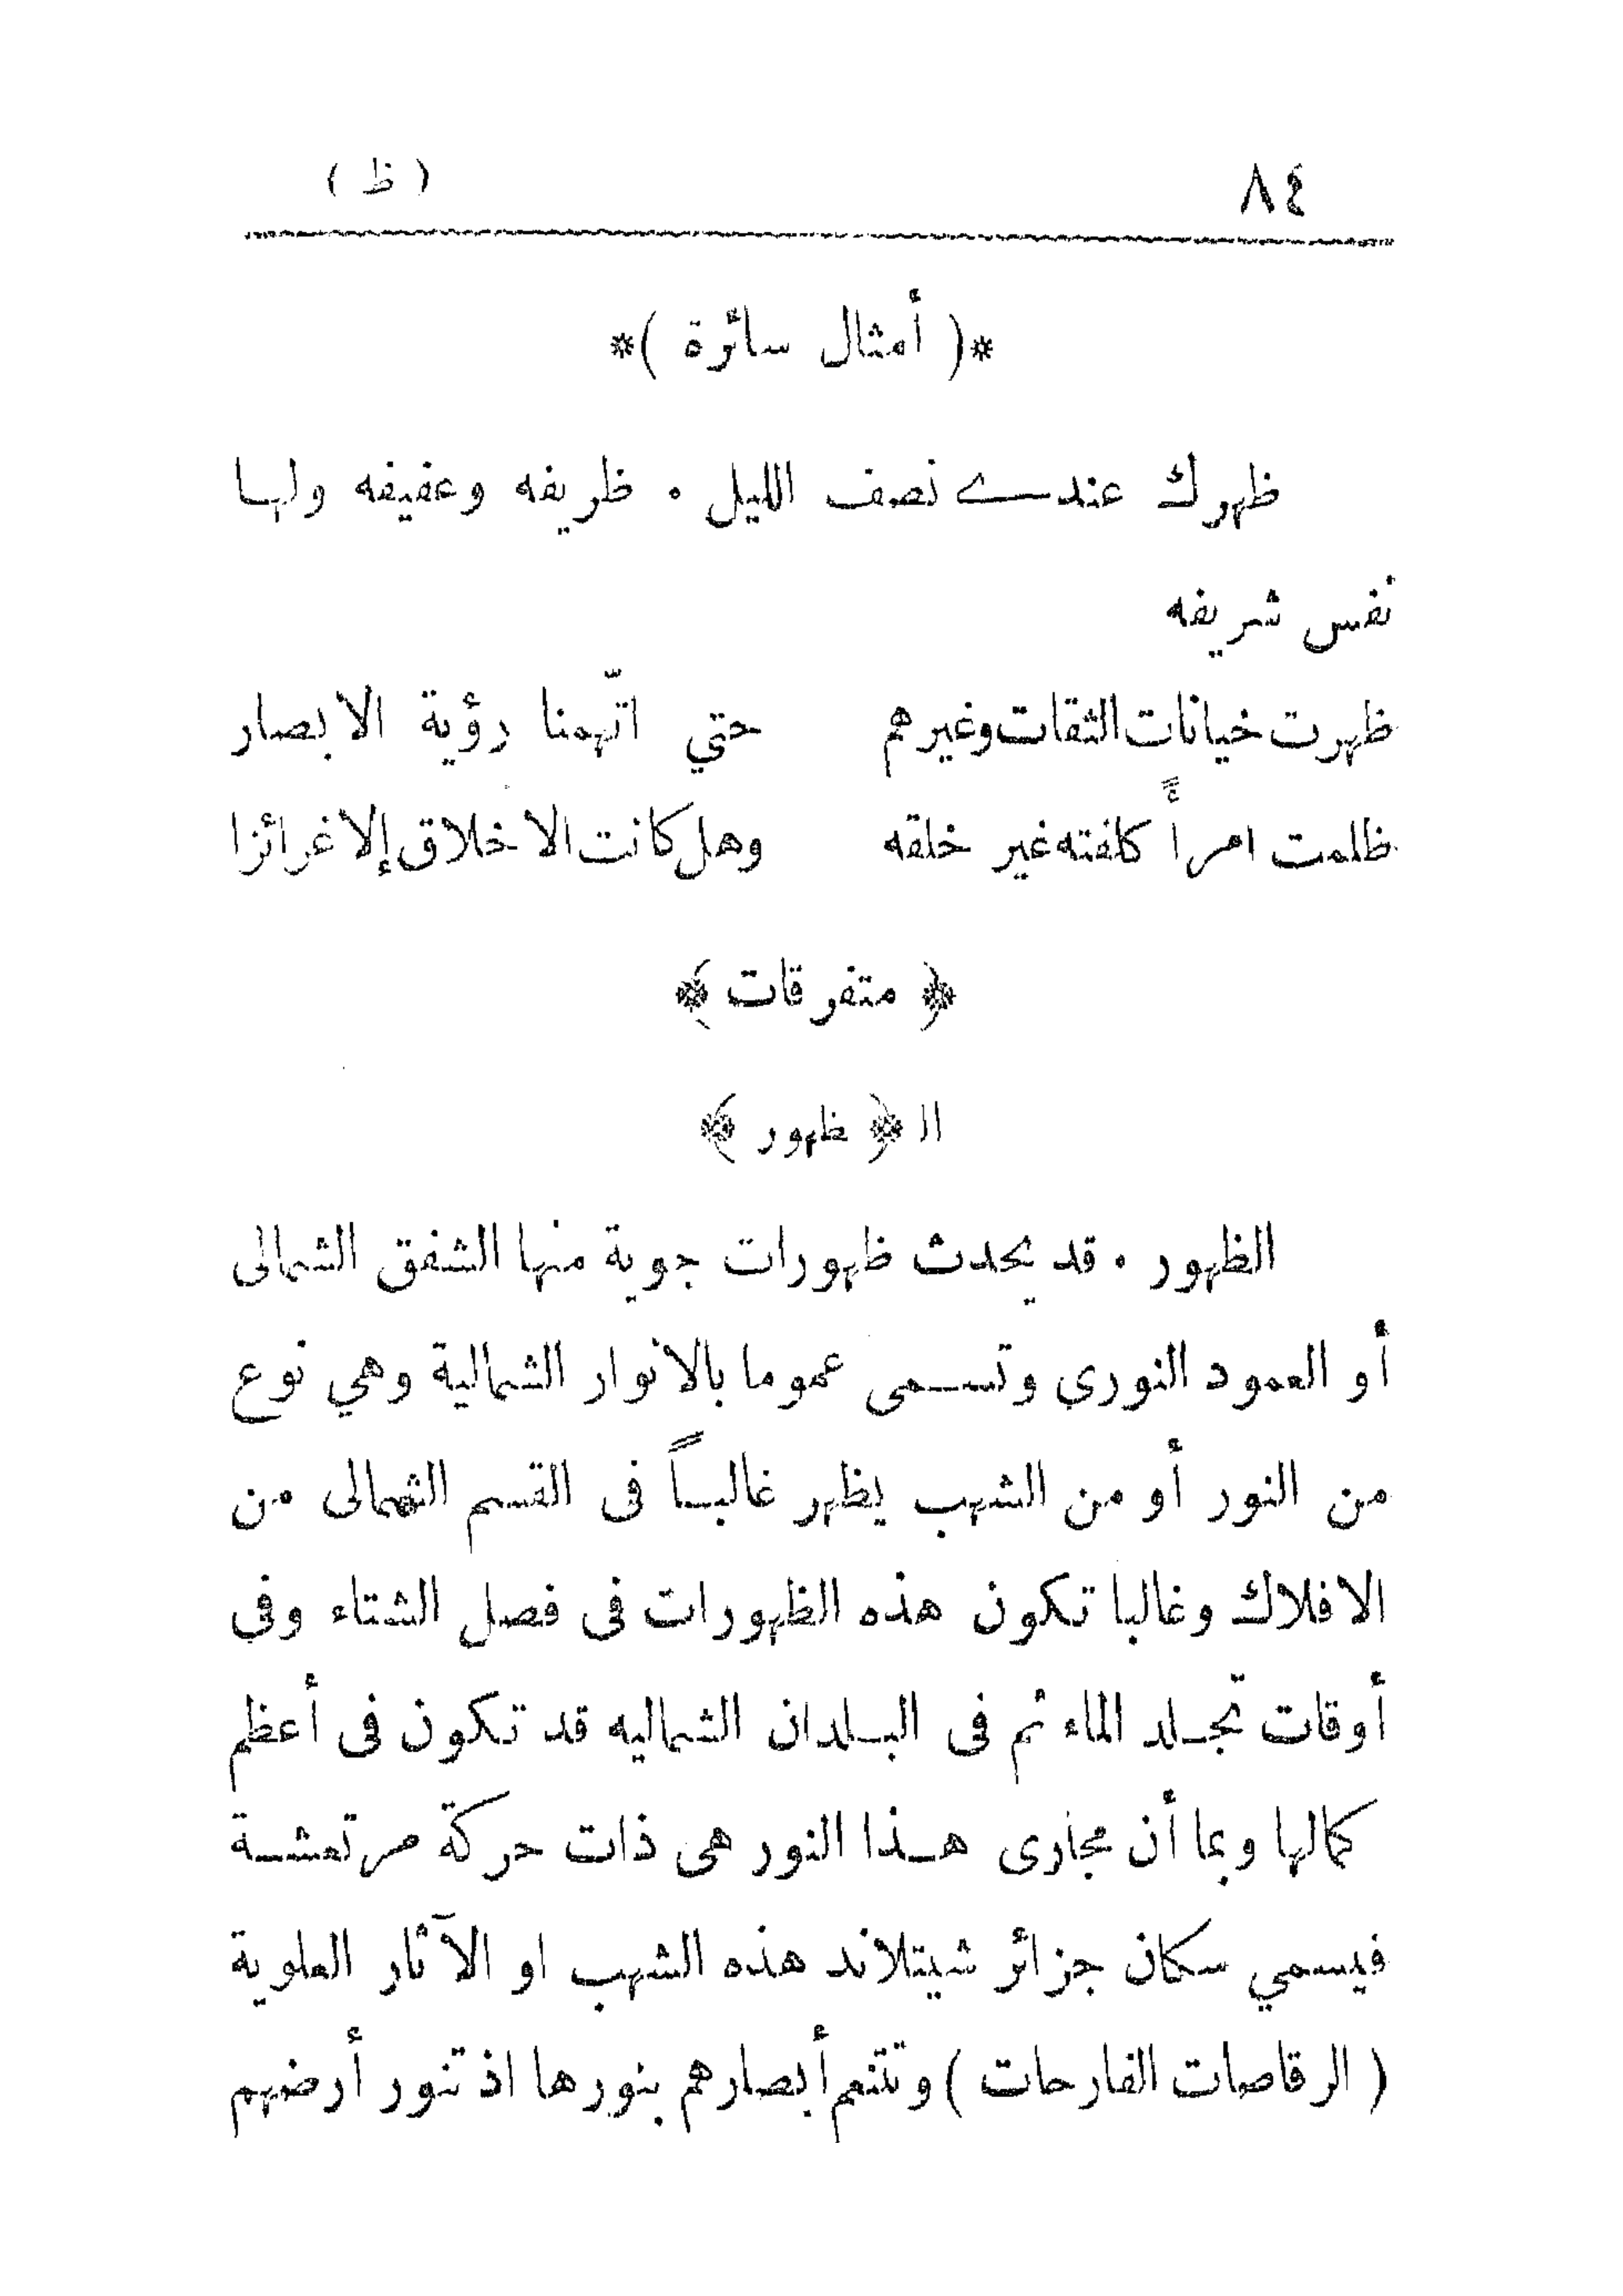 ٨٤ ( ظ )
*( أمثال سائرة )*
ظهرك عندى نصف الليل . ظريفه وعفيفه ولها
نفس شريفه
ظهرت خيانات الثقات وغيرهم حتي اتّهمنا رؤية الابصار
ظلمت امرأً كلفته غير خلقه وهل كانت الاخلاق إلا غرائزا
﴿ متفرقات ﴾
ال ﴿ ظهور ﴾
الظهور . قد يحدث ظهورات جوية منها الشفق الشمالى
أو العمود النورى وتسمى عموما بالانوار الشمالية وهي نوع
من النور أو من الشهب يظهر غالباً فى القسم الشمالى من
الافلاك وغالبا تكون هذه الظهورات فى فصل الشتاء وفى
أوقات تجلد الماء ثم فى البلدان الشماليه قد تكون فى أعظم
كمالها وبما أن مجارى هذا النور هى ذات حركة مرتعشة
فيسمي سكان جزائر شيتلاند هذه الشهب او الآثار العلوية
( الرقاصات الفارحات ) وتتنعم أبصارهم بنورها اذ تنور أرضهم